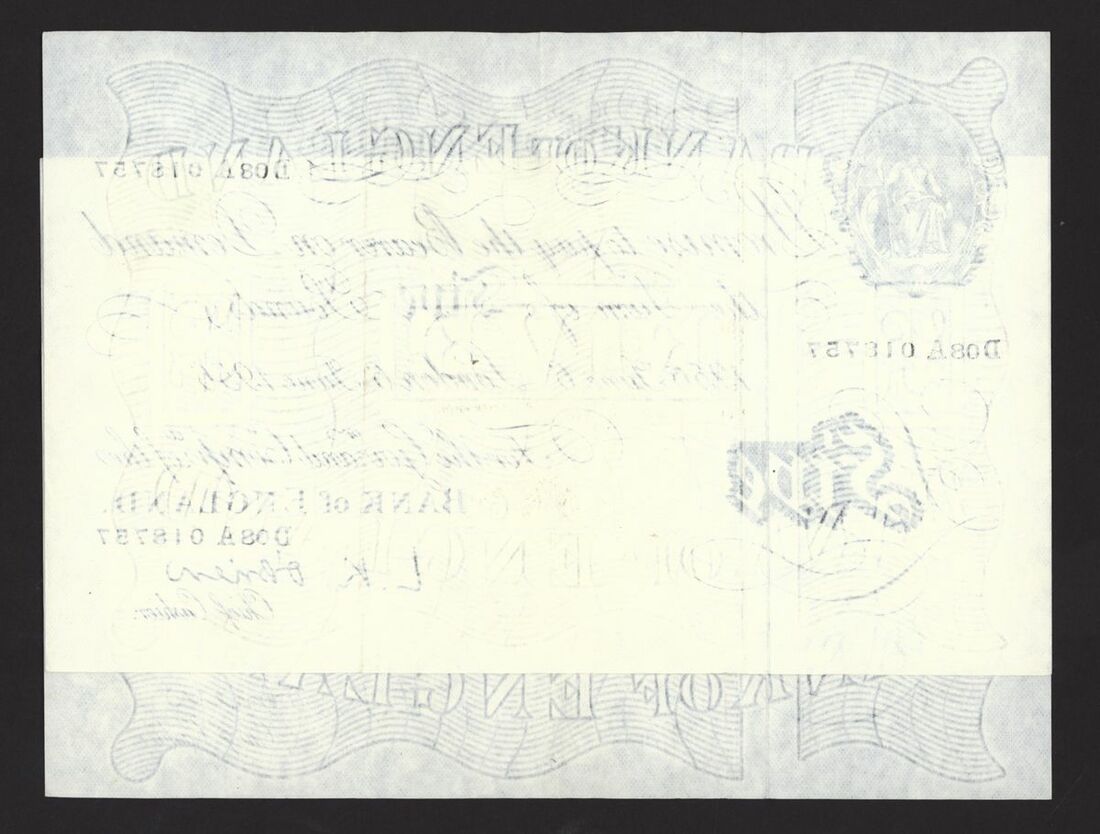 BANK OF ENGLAND
D08A 018757
I Promise to pay the Bearer on Demand
the Sum of Five Pounds
June London June
D08A 018757
For the Govr. and Compa. of the
BANK of ENGLAND.
Five
D08A 018757
L.K. O'Brien
Chief Cashier.
BANK OF ENGLAND